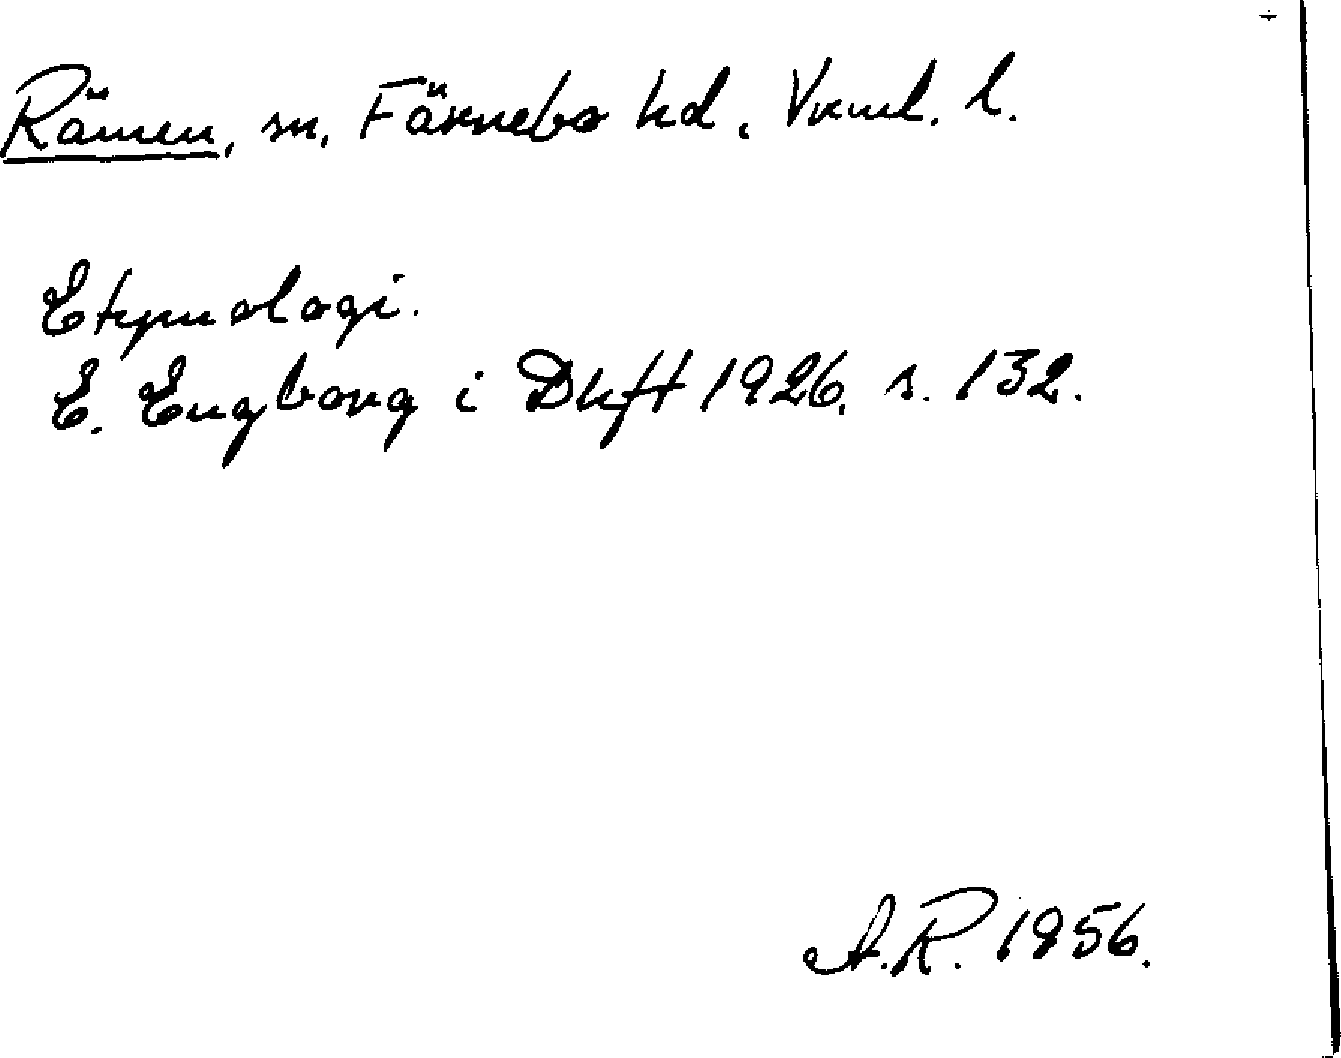 Rämen, sn, Färnebo hd, Vrml. l.
Etymologi.
E. Engborg i Dhft 1926, s. 132.
A.R. 1956.